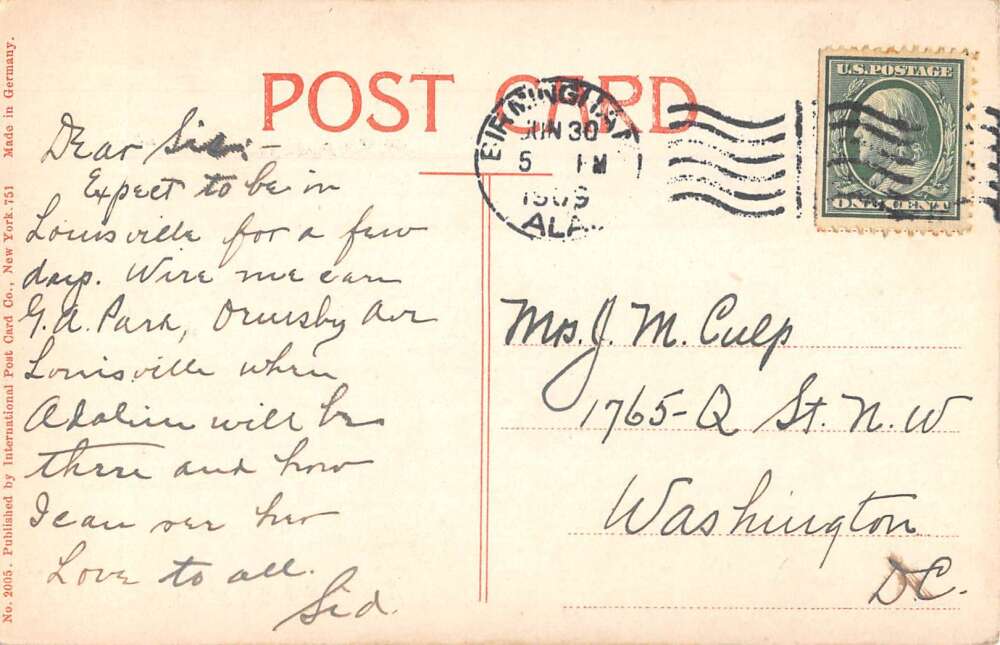 POST CARD
BIRMINGHAM
JUN 30
5 PM
1909
ALA.
U.S. POSTAGE
ONE CENT
Dear Sis:-
Expect to be in
Louisville for a few
days. Wire me care
G. A. Park, Ormsby Ave
Louisville when
Adaline will be
there and how
I can see her
Love to all.
Sid.
Mrs. J. M. Culp
1765-Q St. N. W
Washington
D.C.
No. 2005. Published by International Post Card Co., New York. 751 Made in Germany.